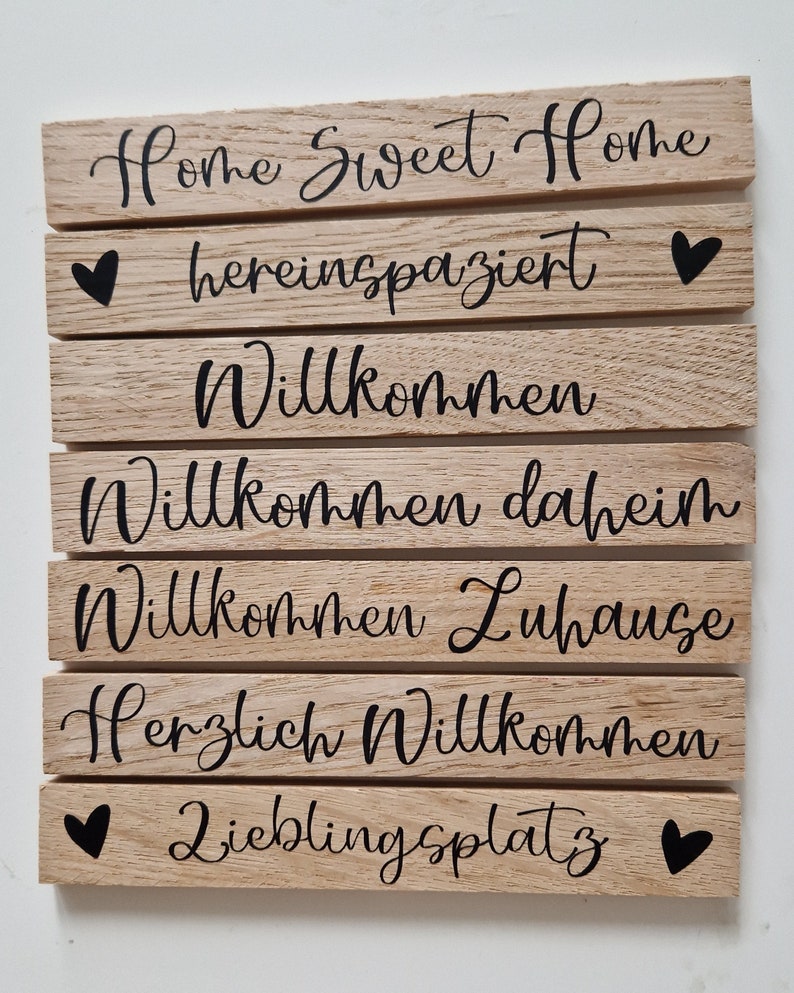 Home Sweet Home
hereinspaziert
Willkommen
Willkommen daheim
Willkommen Zuhause
Herzlich Willkommen
Lieblingsplatz